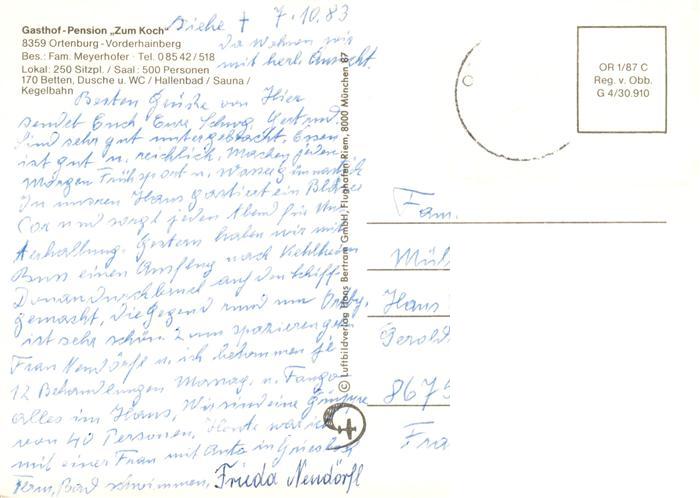 Siehe + 7.10.83
Da Wohnen wir
mit herl. Aussicht.
Gasthof-Pension „Zum Koch“
8359 Ortenburg-Vorderhainberg
Bes.: Fam. Meyerhofer · Tel. 0 85 42 / 518
Lokal: 250 Sitzpl. / Saal: 500 Personen
170 Betten, Dusche u. WC / Hallenbad / Sauna /
Kegelbahn
Besten Grüße von Hier
sendet Euch Eure Schwg. Gert und
sind sehr gut untergebracht, Essen
ist gut u. reichlich, Machen jeden
Morgen Frühsport u. Wassergymnastik
In unseren Haus gastiert ein Bläser
Cor und sorgt jeden Abend für Un
terhaltung. Gestern haben wir mit
Buss einen Ausflug nach Kehlheim
Donaudurchbruch auf den Schiff
gemacht, die Gegend rund um
ist sehr schön zum spazierengen
Frau Nendörfl u. ich bekommen je
12 Behandlungen Massag. u. Fango
alles im Haus, Wir sind eine Gruppe
von 40 Personen, Heute war ich
mit einer Frau mit Auto in Griesbach
Term, Bad schwimmen, Frieda Nendörfl
© Luftbildverlag Hans Bertram GmbH, Flughafen Riem, 8000 München 87
OR 1/87 C
Reg. v. Obb.
G 4/30.910
Fam.
Mül
Hans
Gerold
8675
Fra